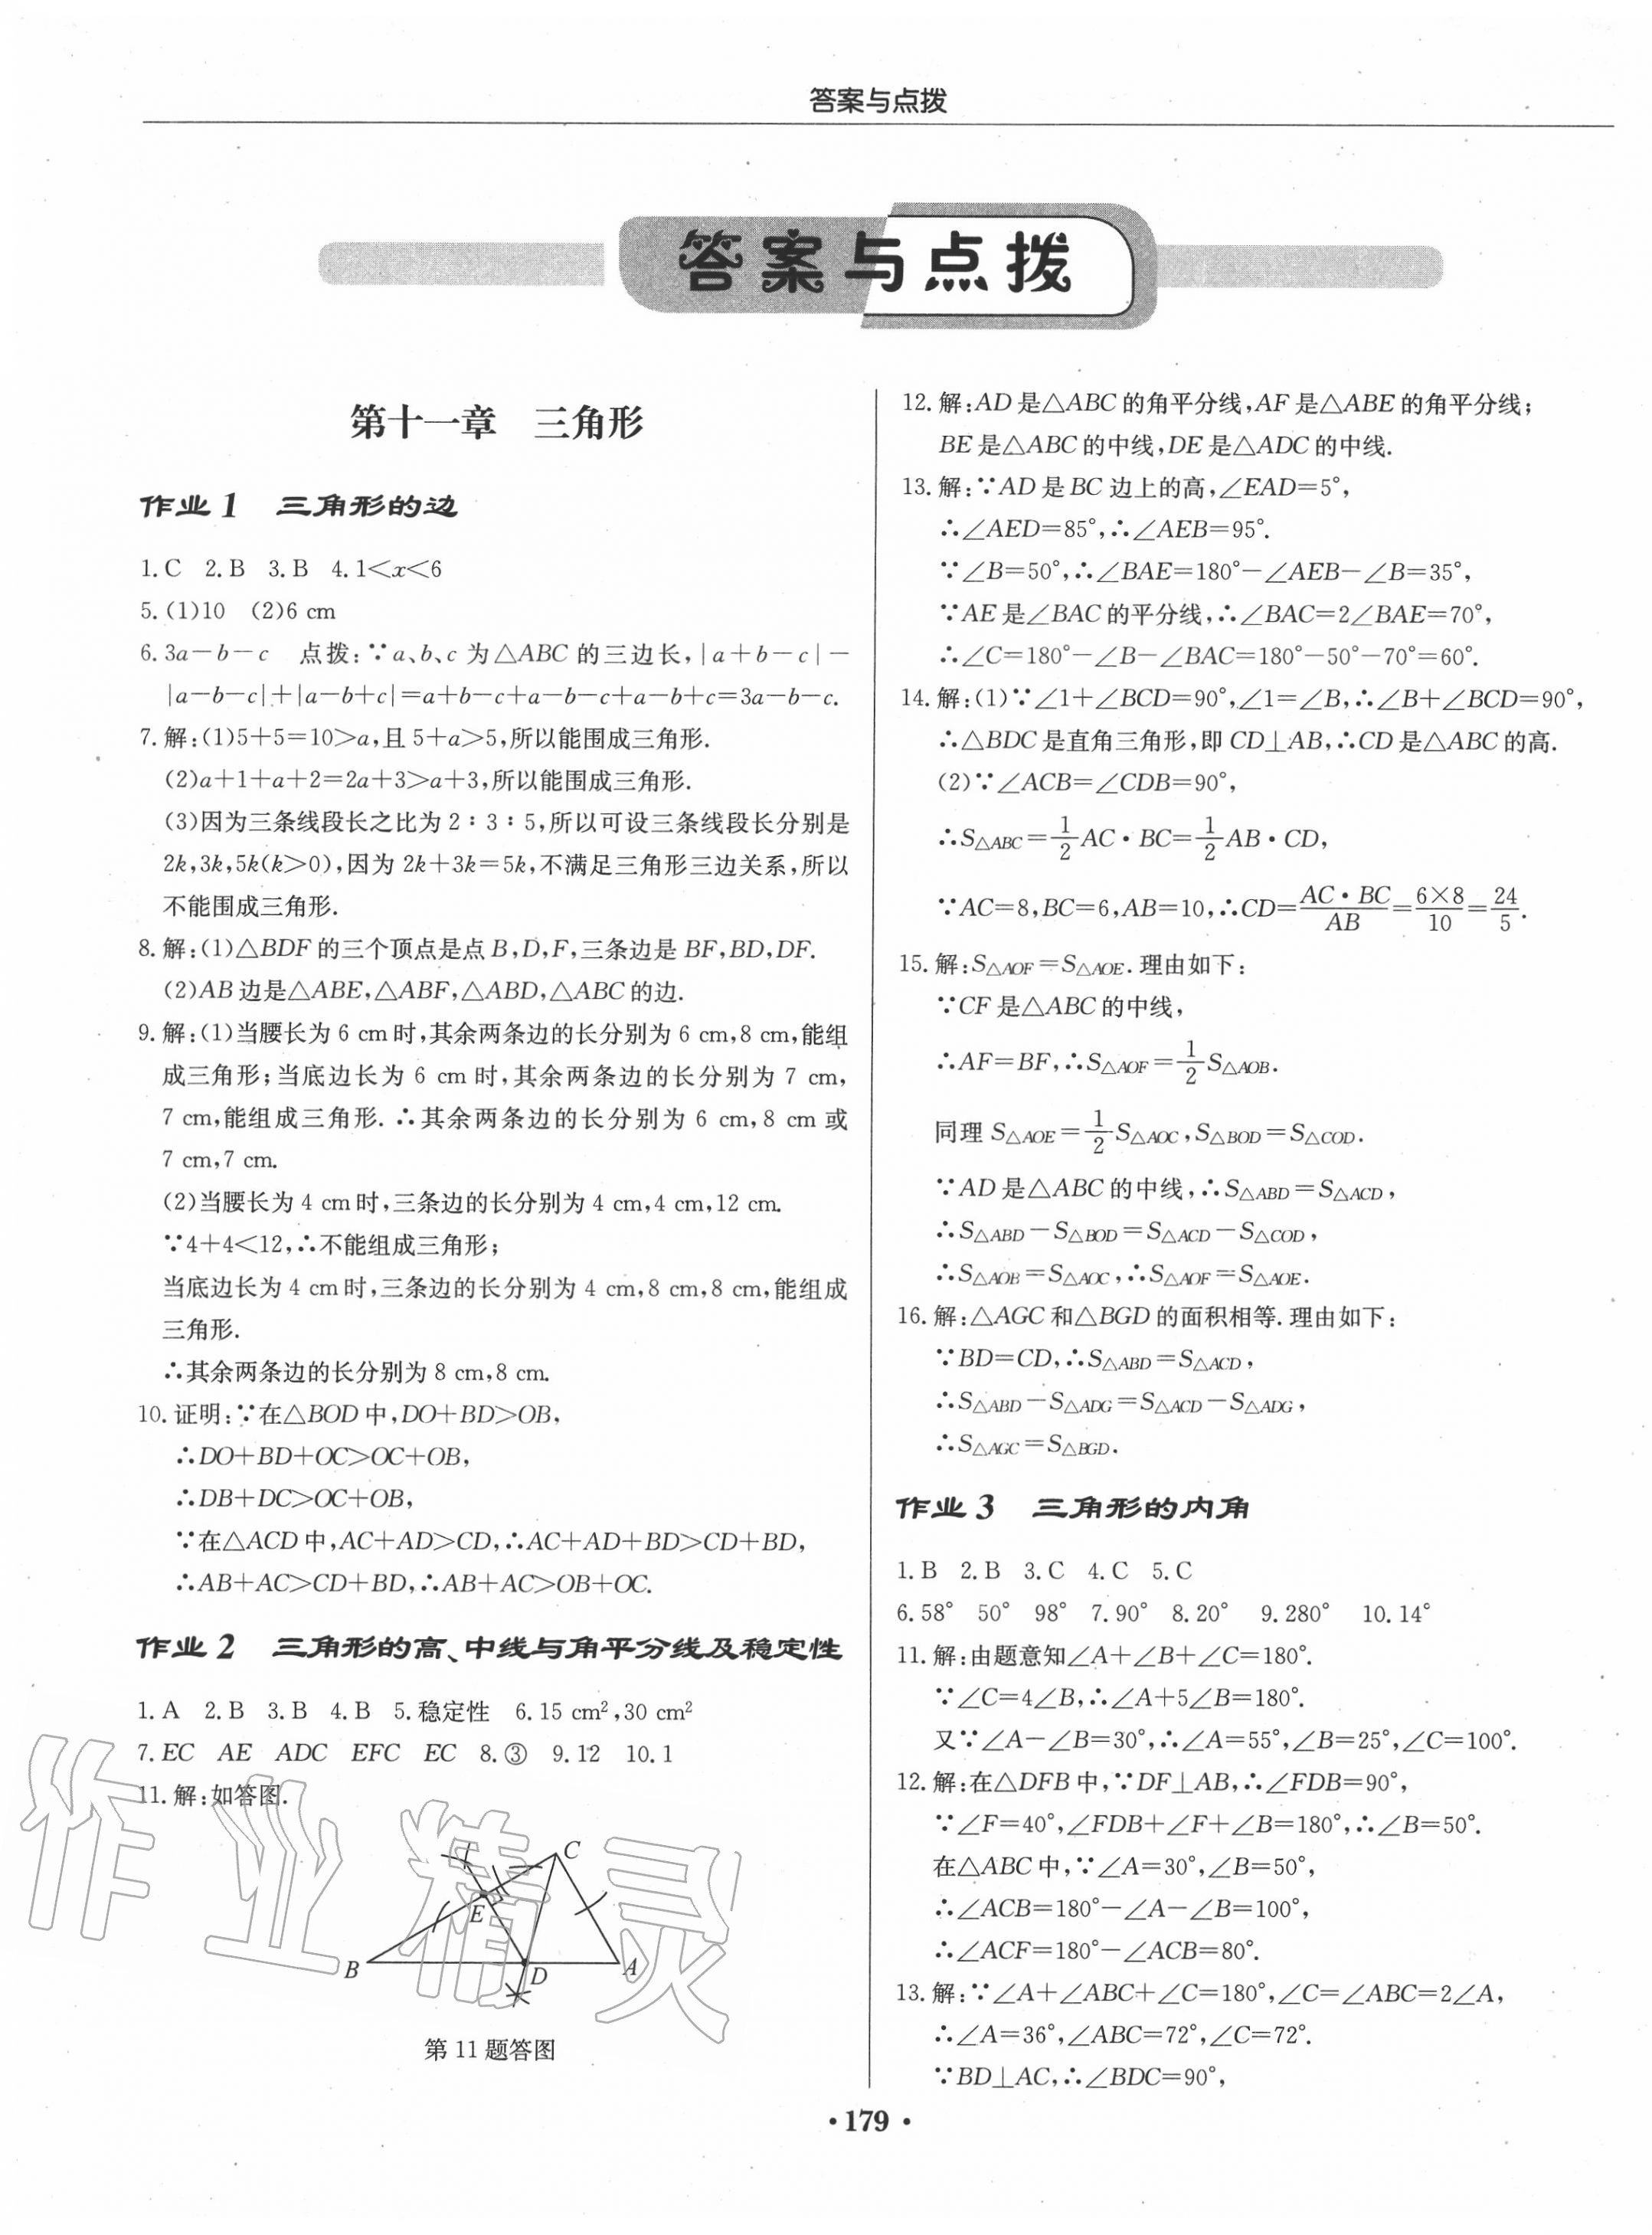 答案与点拨
答案与点拨
第十一章 三角形
作业1 三角形的边
1.C 2.B 3.B 4.1<x<6
5.(1)10 (2)6 cm
6.3a-b-c 点拨:∵a、b、c为△ABC的三边长,|a+b-c|-
|a-b-c|+|a-b+c|=a+b-c+a-b-c+a-b+c=3a-b-c.
7.解:(1)5+5=10>a,且5+a>5,所以能围成三角形.
(2)a+1+a+2=2a+3>a+3,所以能围成三角形.
(3)因为三条线段长之比为2∶3∶5,所以可设三条线段长分别是
2k,3k,5k(k>0),因为2k+3k=5k,不满足三角形三边关系,所以
不能围成三角形.
8.解:(1)△BDF的三个顶点是点B,D,F,三条边是BF,BD,DF.
(2)AB边是△ABE,△ABF,△ABD,△ABC的边.
9.解:(1)当腰长为6 cm时,其余两条边的长分别为6 cm,8 cm,能组
成三角形;当底边长为6 cm时,其余两条边的长分别为7 cm,
7 cm,能组成三角形.∴其余两条边的长分别为6 cm,8 cm或
7 cm,7 cm.
(2)当腰长为4 cm时,三条边的长分别为4 cm,4 cm,12 cm.
∵4+4<12,∴不能组成三角形;
当底边长为4 cm时,三条边的长分别为4 cm,8 cm,8 cm,能组成
三角形.
∴其余两条边的长分别为8 cm,8 cm.
10.证明:∵在△BOD中,DO+BD>OB,
∴DO+BD+OC>OC+OB,
∴DB+DC>OC+OB,
∵在△ACD中,AC+AD>CD,∴AC+AD+BD>CD+BD,
∴AB+AC>CD+BD,∴AB+AC>OB+OC.
作业2 三角形的高、中线与角平分线及稳定性
1.A 2.B 3.B 4.B 5.稳定性 6.15 cm²,30 cm²
7.EC AE ADC EFC EC 8.③ 9.12 10.1
11.解:如答图.
C
E
B
D
A
第11题答图
12.解:AD是△ABC的角平分线,AF是△ABE的角平分线;
BE是△ABC的中线,DE是△ADC的中线.
13.解:∵AD是BC边上的高,∠EAD=5°,
∴∠AED=85°,∴∠AEB=95°.
∵∠B=50°,∴∠BAE=180°-∠AEB-∠B=35°,
∵AE是∠BAC的平分线,∴∠BAC=2∠BAE=70°,
∴∠C=180°-∠B-∠BAC=180°-50°-70°=60°.
14.解:(1)∵∠1+∠BCD=90°,∠1=∠B,∴∠B+∠BCD=90°,
∴△BDC是直角三角形,即CD⊥AB,∴CD是△ABC的高.
(2)∵∠ACB=∠CDB=90°,
∴S△ABC=1/2 AC·BC=1/2 AB·CD,
∵AC=8,BC=6,AB=10,∴CD=AC·BC/AB=6×8/10=24/5.
15.解:S△AOF=S△AOE.理由如下:
∵CF是△ABC的中线,
∴AF=BF,∴S△AOF=1/2 S△AOB.
同理S△AOE=1/2 S△AOC,S△BOD=S△COD.
∵AD是△ABC的中线,∴S△ABD=S△ACD,
∴S△ABD-S△BOD=S△ACD-S△COD,
∴S△AOB=S△AOC,∴S△AOF=S△AOE.
16.解:△AGC和△BGD的面积相等.理由如下:
∵BD=CD,∴S△ABD=S△ACD,
∴S△ABD-S△ADG=S△ACD-S△ADG,
∴S△AGC=S△BGD.
作业3 三角形的内角
1.B 2.B 3.C 4.C 5.C
6.58° 50° 98° 7.90° 8.20° 9.280° 10.14°
11.解:由题意知∠A+∠B+∠C=180°.
∵∠C=4∠B,∴∠A+5∠B=180°.
又∵∠A-∠B=30°,∴∠A=55°,∠B=25°,∠C=100°.
12.解:在△DFB中,∵DF⊥AB,∴∠FDB=90°,
∵∠F=40°,∠FDB+∠F+∠B=180°,∴∠B=50°.
在△ABC中,∵∠A=30°,∠B=50°,
∴∠ACB=180°-∠A-∠B=100°,
∴∠ACF=180°-∠ACB=80°.
13.解:∵∠A+∠ABC+∠C=180°,∠C=∠ABC=2∠A,
∴∠A=36°,∠ABC=72°,∠C=72°.
∵BD⊥AC,∴∠BDC=90°,
·179·
作业精灵